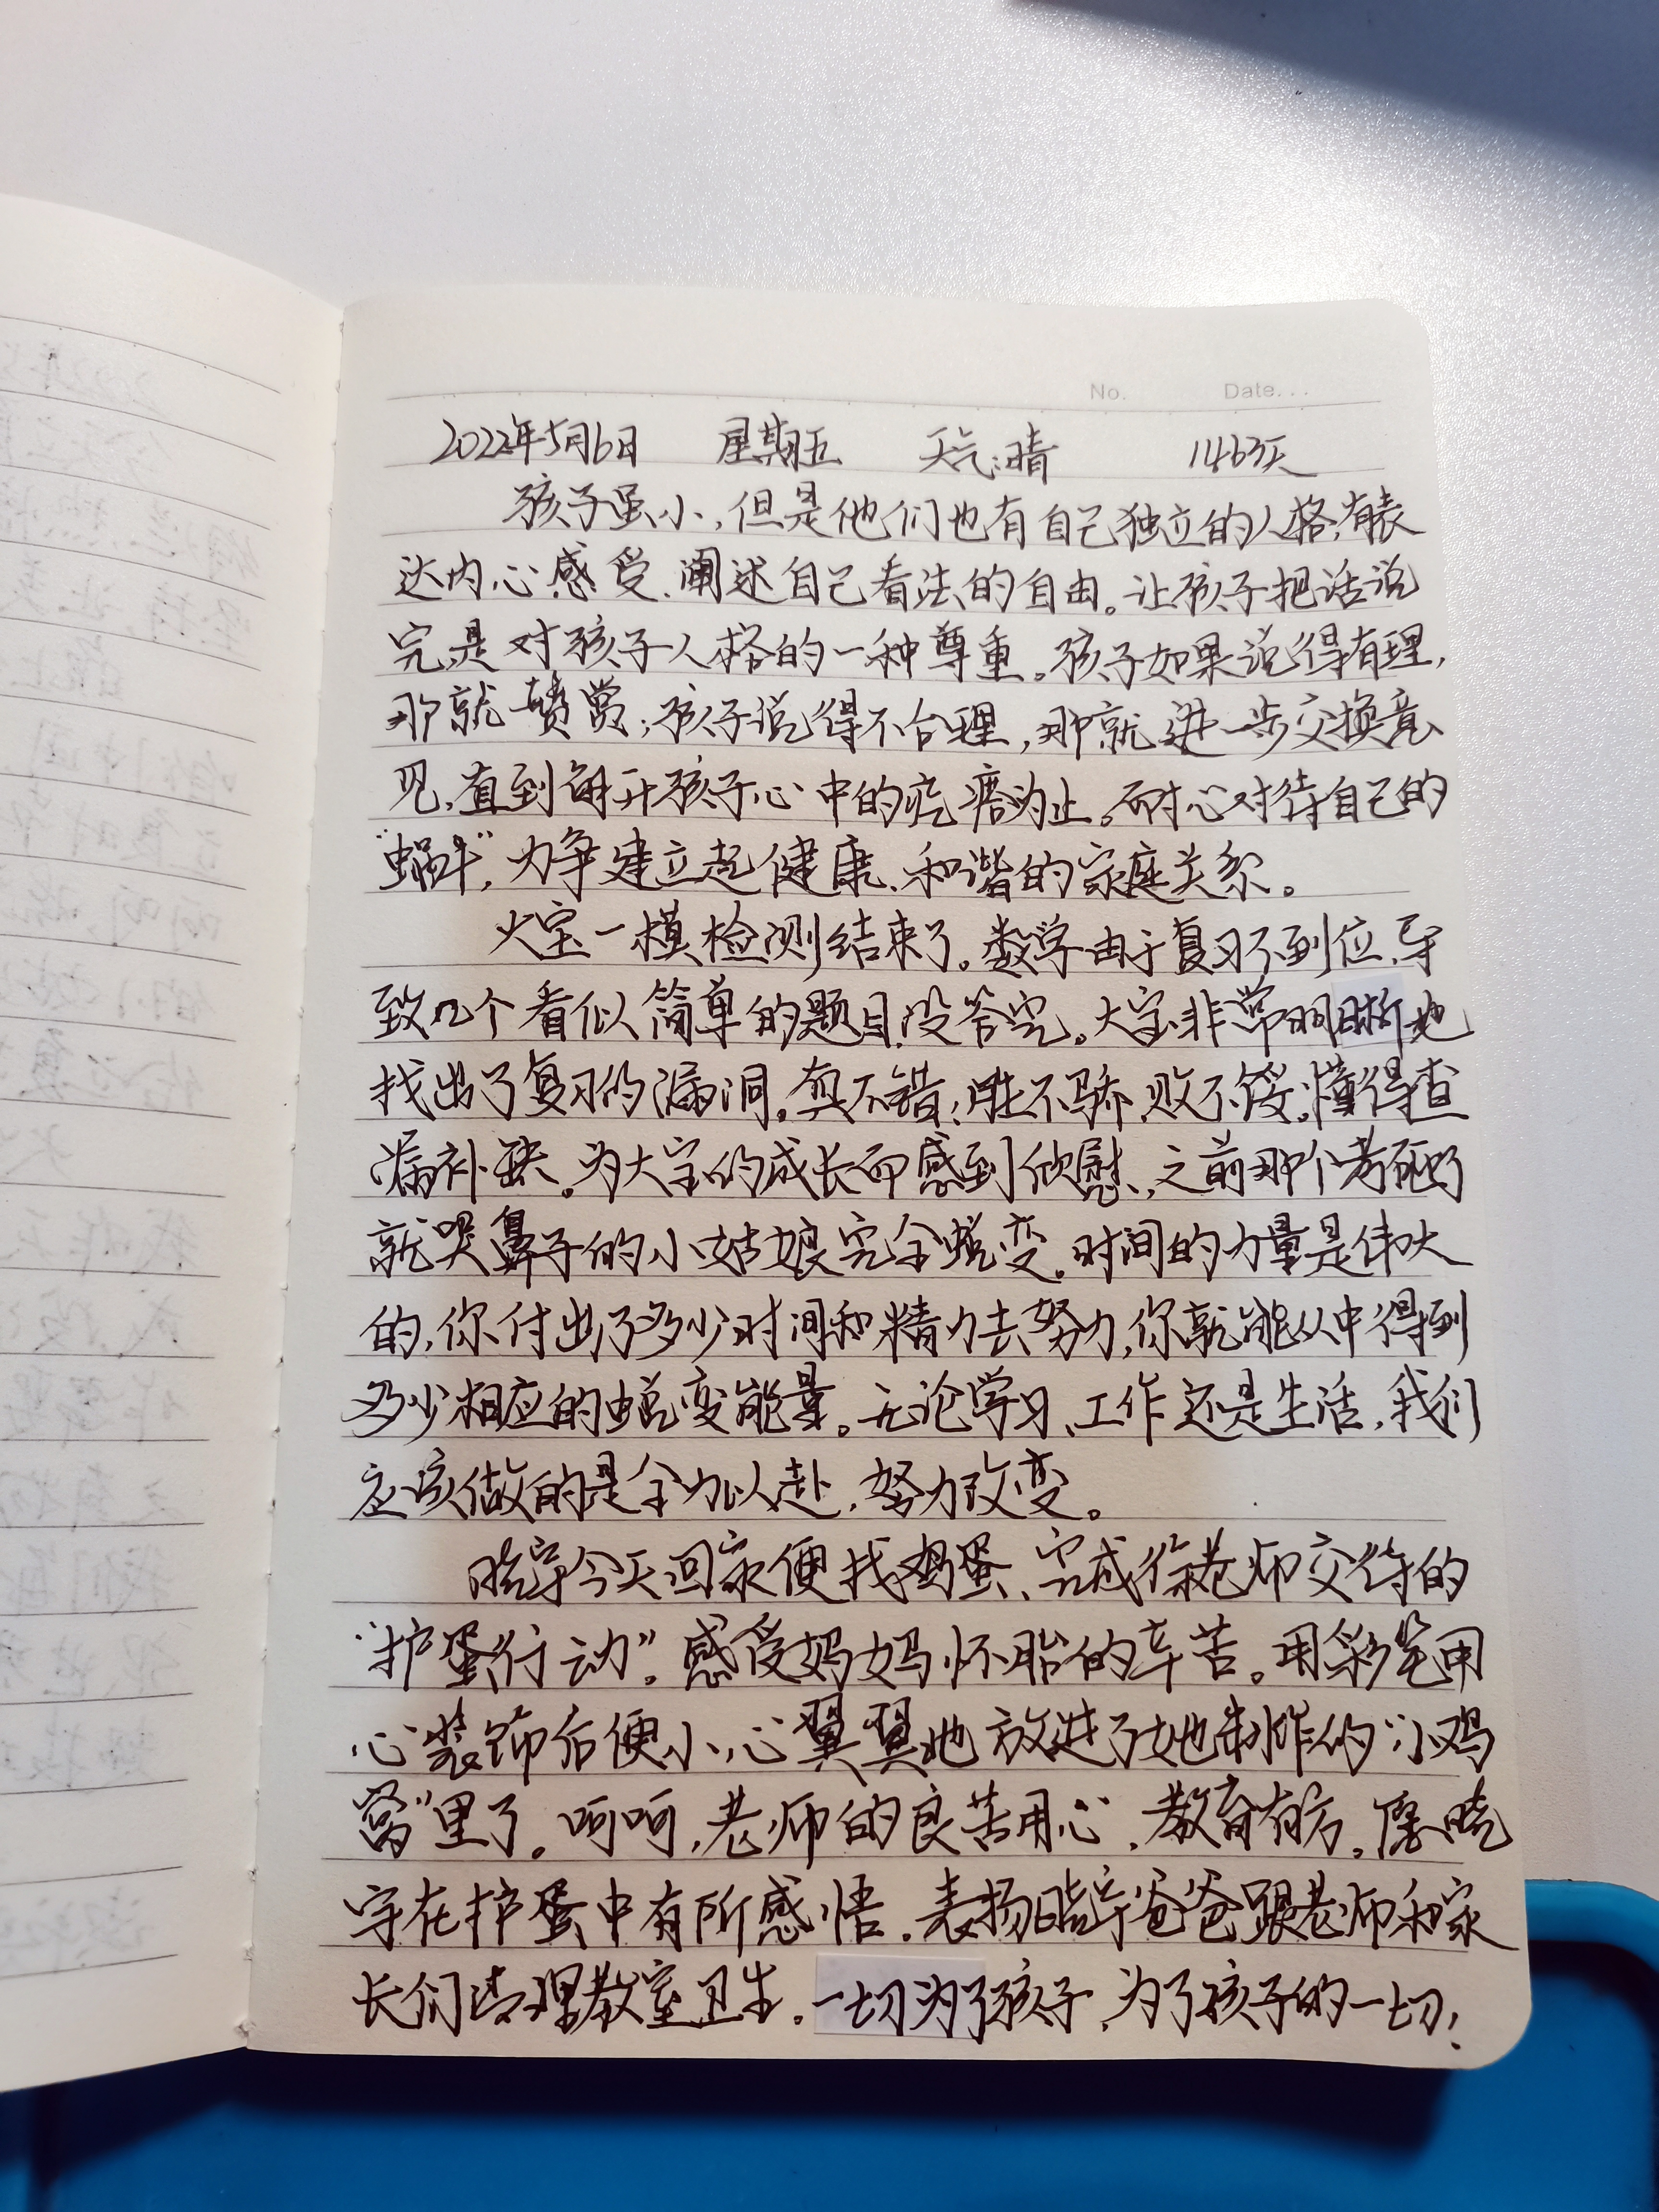 No.
Date...
2022年5月6日 星期五 天气:晴 1463天
孩子虽小,但是他们也有自己独立的人格,有表
达内心感受、阐述自己看法的自由。让孩子把话说
完,是对孩子人格的一种尊重。孩子如果说得有理,
那就赞赏;孩子说得不合理,那就进一步交换意
见,直到解开孩子心中的疙瘩为止。耐心对待自己的
“蜗牛”,力争建立起健康、和谐的家庭关系。
大宝一模检测结束了。数学由于复习不到位,导
致几个看似简单的题目没答完。大宝非常明晰地
找出了复习的漏洞。真不错,胜不骄,败不馁。懂得查
漏补缺。为大宝的成长而感到欣慰,之前那个考砸了
就哭鼻子的小姑娘完全蜕变。时间的力量是伟大
的,你付出了多少时间和精力去努力,你就能从中得到
多少相应的蜕变能量。无论学习、工作还是生活,我们
应该做的是全力以赴,努力改变。
晓宇今天回家便找鸡蛋、完成徐老师交待的
“护蛋行动”。感受妈妈怀胎的辛苦。用彩笔用
心装饰后便小心翼翼地放进了她制作的“小鸡
窝”里了。呵呵,老师的良苦用心,教育有方。愿晓
宇在护蛋中有所感悟。表扬晓宇爸爸跟老师和家
长们清理教室卫生。一切为了孩子,为了孩子的一切!